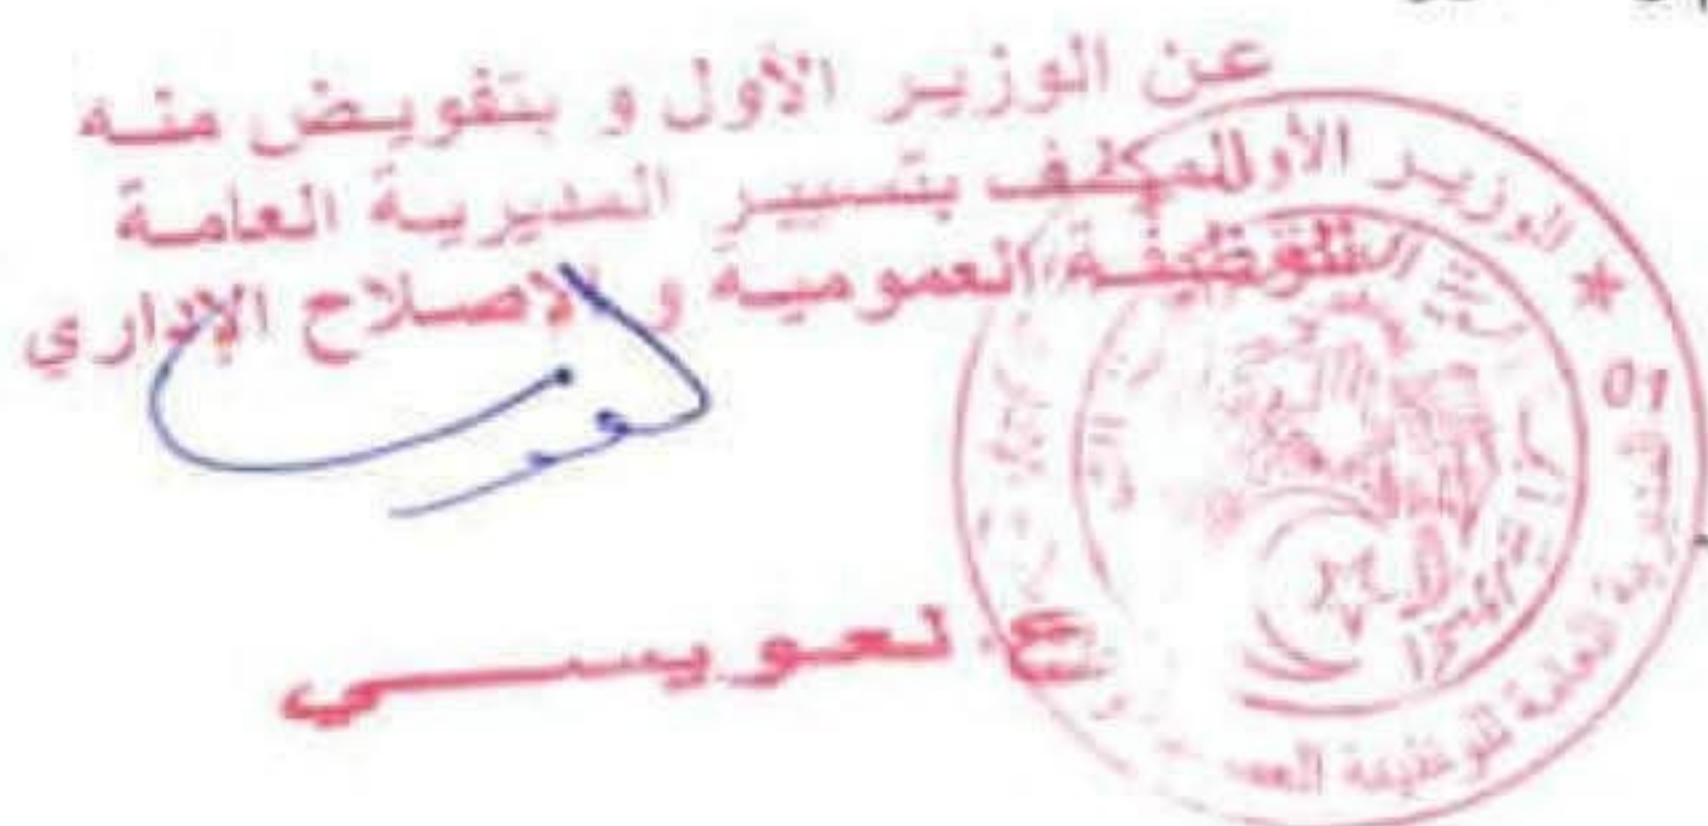 عن الوزير الأول و بتفويض منه
المكلف بتسيير المديرية العامة
للوظيفة العمومية و الإصلاح الإداري
ع. لعويسي
الوزير الأول
★ 01
المديرية العامة للوظيفة العمومية